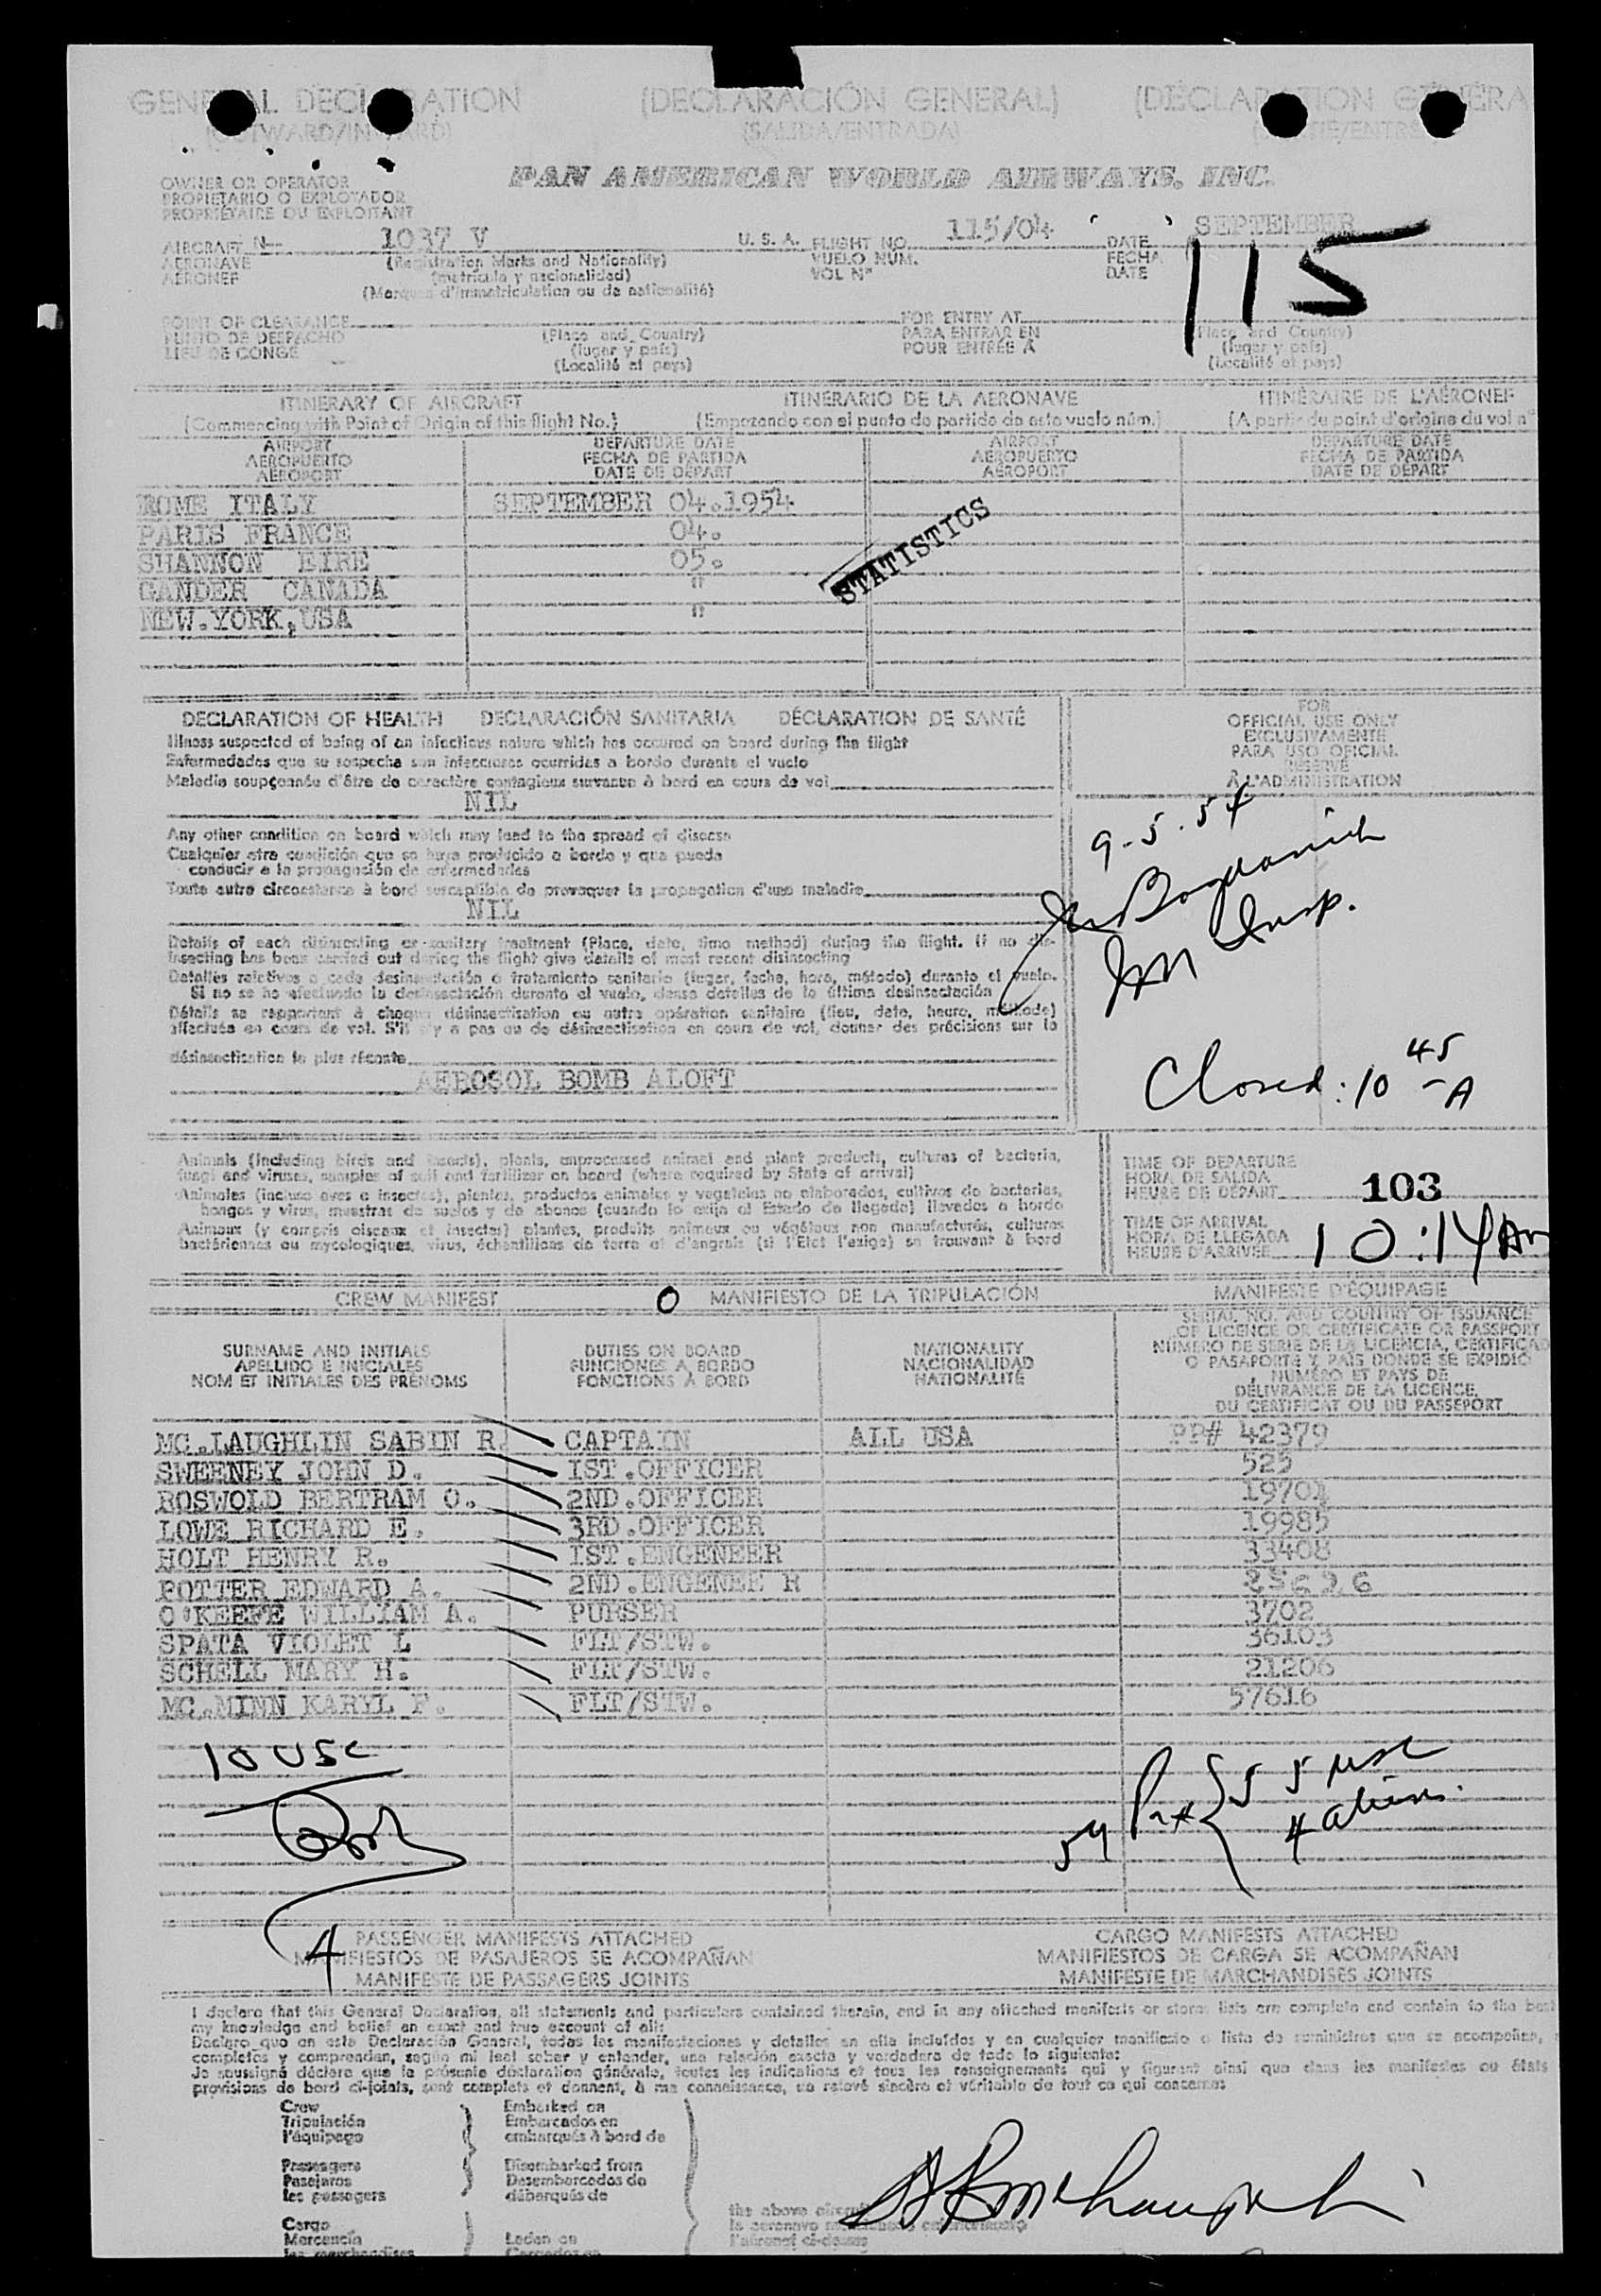 GENERAL DECLARATION (DECLARACIÓN GENERAL) (DÉCLARATION GÉNÉRA
(OUTWARD/INWARD) (SALIDA/ENTRADA)
OWNER OR OPERATOR PAN AMERICAN WORLD AIRWAYS, INC.
PROPIETARIO O EXPLOTADOR
PROPRIÉTAIRE OU EXPLOITANT
AIRCRAFT N— 1037 V U. S. A. FLIGHT NO. 115/04 DATE SEPTEMBER
AERONAVE (Registration Marks and Nationality) VUELO NÚM. FECHA
AÉRONEF (matrícula y nacionalidad) VOL Nº DATE
(Marques d'immatriculation ou de nationalité)
115
POINT OF CLEARANCE FOR ENTRY AT
PUNTO DE DESPACHO (Place and Country) PARA ENTRAR EN (Place and Country)
LIEU DE CONGÉ (lugar y país) POUR ENTRÉE À (lugar y país)
(Localité et pays) (Localité et pays)
ITINERARY OF AIRCRAFT ITINERARIO DE LA AERONAVE ITINÉRAIRE DE L'AÉRONEF
(Commencing with Point of Origin of this flight No.) (Empezando con el punto de partida de este vuelo núm.) (A partir du point d'origine du vol n°
AIRPORT DEPARTURE DATE AIRPORT DEPARTURE DATE
AEROPUERTO FECHA DE PARTIDA AEROPUERTO FECHA DE PARTIDA
AÉROPORT DATE DE DÉPART AÉROPORT DATE DE DÉPART
ROME ITALY SEPTEMBER 04.1954
PARIS FRANCE 04.
SHANNON EIRE 05.
GANDER CANADA "
NEW.YORK,USA "
STATISTICS
DECLARATION OF HEALTH DECLARACIÓN SANITARIA DÉCLARATION DE SANTÉ
Illness suspected of being of an infectious nature which has occured on board during the flight
Enfermedades que se sospecha son infecciosas ocurridas a bordo durante el vuelo
Maladie soupçonnée d'être de caractère contagieux survenue à bord en cours de vol
NIL
Any other condition on board which may lead to the spread of disease
Cualquier otra condición que se haya producido a bordo y que pueda
conducir a la propagación de enfermedades
Toute autre circonstance à bord susceptible de provoquer la propagation d'une maladie
NIL
Details of each disinsecting or sanitary treatment (Place, date, time method) during the flight. If no dis-
insecting has been carried out during the flight give details of most recent disinsecting
Detalles relativos a cada desinsectación o tratamiento sanitario (lugar, fecha, hora, método) durante el vuelo.
Si no se ha efectuado la desinsectación durante el vuelo, dense detalles de la última desinsectación
Détails se rapportant à chaque désinsectisation ou autre opération sanitaire (lieu, date, heure, méthode)
effectuée en cours de vol. S'il n'y a pas eu de désinsectisation en cours de vol, donner des précisions sur la
désinsectisation la plus récente
AEROSOL BOMB ALOFT
FOR
OFFICIAL USE ONLY
EXCLUSIVAMENTE
PARA USO OFICIAL
RÉSERVÉ
À L'ADMINISTRATION
9-5-54
Bogdanich
Imm Insp.
Closed: 10 45 A
Animals (including birds and insects), plants, unprocessed animal and plant products, cultures of bacteria,
fungi and viruses, samples of soil and fertilizer on board (where required by State of arrival)
Animales (incluso aves e insectos), plantas, productos animales y vegetales no elaborados, cultivos de bacterias,
hongos y virus, muestras de suelos y de abonos (cuando lo exija el Estado de llegada) llevados a bordo
Animaux (y compris oiseaux et insectes) plantes, produits animaux ou végétaux non manufacturés, cultures
bactériennes ou mycologiques, virus, échantillons de terre et d'engrais (si l'Etat l'exige) se trouvant à bord
TIME OF DEPARTURE
HORA DE SALIDA
HEURE DE DÉPART 103
TIME OF ARRIVAL
HORA DE LLEGADA
HEURE D'ARRIVÉE 10:14 Am
CREW MANIFEST 0 MANIFIESTO DE LA TRIPULACIÓN MANIFESTE D'ÉQUIPAGE
SURNAME AND INITIALS DUTIES ON BOARD NATIONALITY SERIAL NO. AND COUNTRY OF ISSUANCE
APELLIDO E INICIALES FUNCIONES A BORDO NACIONALIDAD OF LICENCE OR CERTIFICATE OR PASSPORT
NOM ET INITIALES DES PRÉNOMS FONCTIONS À BORD NATIONALITÉ NÚMERO DE SERIE DE LA LICENCIA, CERTIFICADO
O PASAPORTE Y PAÍS DONDE SE EXPIDIÓ
NUMÉRO ET PAYS DE
DÉLIVRANCE DE LA LICENCE,
DU CERTIFICAT OU DU PASSEPORT
MC.LAUGHLIN SABIN R. CAPTAIN ALL USA PP# 42379
SWEENEY JOHN D. IST.OFFICER 525
ROSWOLD BERTRAM O. 2ND.OFFICER 19701
LOWE RICHARD E. 3RD.OFFICER 19985
HOLT HENRY R. IST.ENGENEER 33408
POTTER EDWARD A. 2ND.ENGENEE R
O'KEEFE WILLIAM A. PURSER 3702
SPATA VIOLET L FLT/STW. 36103
SCHELL MARY H. FLT/STW. 21206
MC.MINN KARYL F. FLT/STW. 57616
10 USC
54 Pax { 55 USC
4 aliens.
4
PASSENGER MANIFESTS ATTACHED CARGO MANIFESTS ATTACHED
MANIFIESTOS DE PASAJEROS SE ACOMPAÑAN MANIFIESTOS DE CARGA SE ACOMPAÑAN
MANIFESTE DE PASSAGERS JOINTS MANIFESTE DE MARCHANDISES JOINTS
I declare that this General Declaration, all statements and particulars contained therein, and in any attached manifests or stores lists are complete and contain to the best
my knowledge and belief an exact and true account of all:
Declaro que en esta Declaración General, todas las manifestaciones y detalles en ella incluidos y en cualquier manifiesto o lista de suministros que se acompañen,
completos y comprenden, según mi leal saber y entender, una relación exacta y verdadera de todo lo siguiente:
Je soussigné déclare que la présente déclaration générale, toutes les indications et tous les renseignements qui y figurent ainsi que dans les manifestes ou états
provisions de bord ci-joints, sont complets et donnent, à ma connaissance, un relevé sincère et véritable de tout ce qui concerne:
Crew Embarked on
Tripulación Embarcados en
l'équipage embarqués à bord de
Passengers Disembarked from
Pasajeros Desembarcados de
les passagers débarqués de
the above aircraft
Cargo la aeronave
Mercancía Laden on l'aéronef ci-dessus
les marchandises Cargados en